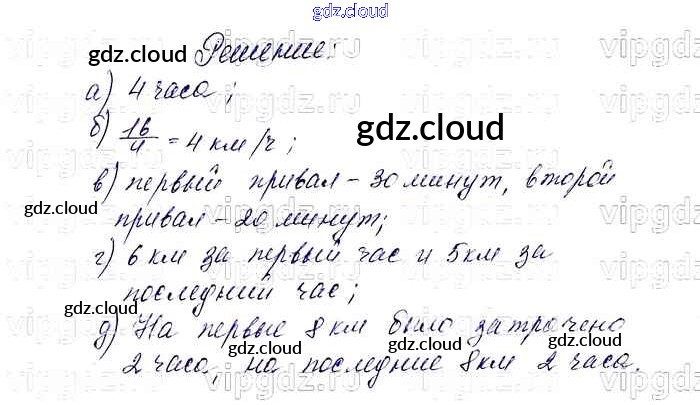 gdz.cloud
Решение:
gdz.cloud
а) 4 часа;
б) 16/4 = 4 км/ч;
gdz.cloud
в) первый привал - 30 минут, второй
gdz.cloud
привал - 20 минут;
г) 6 км за первый час и 5 км за
последний час;
gdz.cloud
д) На первые 8 км было затрачено
gdz.cloud
gdz.cloud
2 часа, на последние 8 км 2 часа.
vipgdz.ru